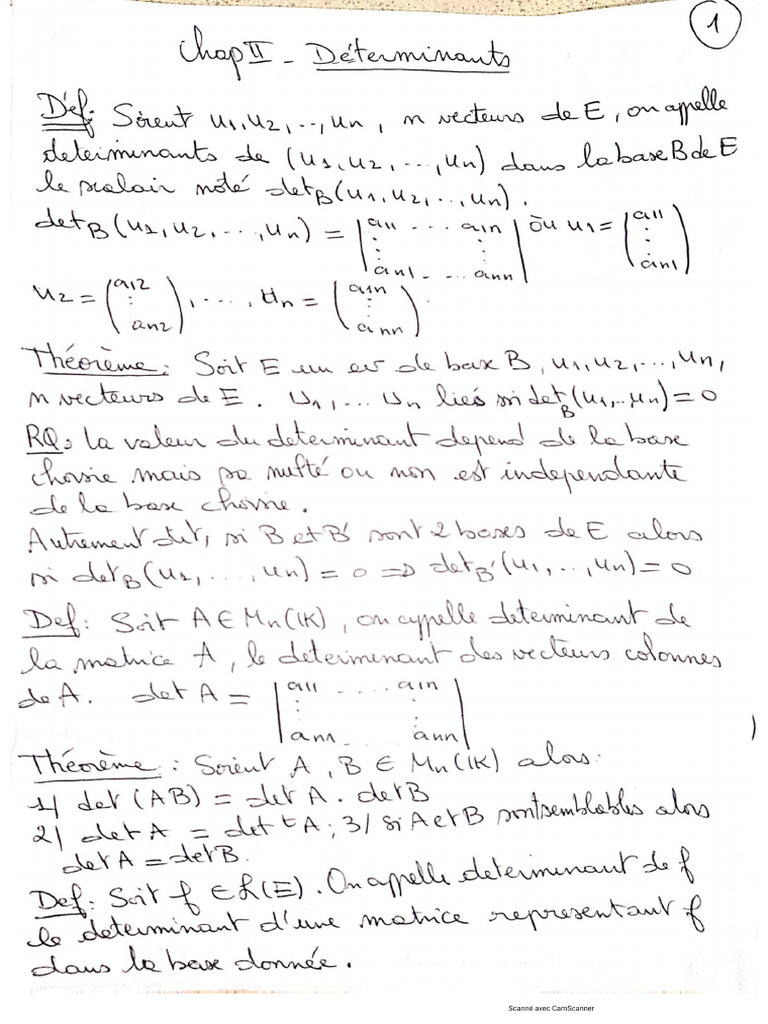 1
Chap II - Déterminants
Déf: Soient u1, u2, ..., un, n vecteurs de E, on appelle
determinants de (u1, u2, ..., un) dans la base B de E
le scalair noté detB(u1, u2, ..., un).
detB(u1, u2, ..., un) = |a11 ... a1n ⋮ ⋮ an1 ... ann| où u1 = (a11 ⋮ an1)
u2 = (a12 ⋮ an2), ..., un = (a1n ⋮ ann)
Théorème: Soit E un ev de base B, u1, u2, ..., un,
n vecteurs de E. u1, ... un liés ssi detB(u1, .. un) = 0
RQ: la valeur du determinant depend de la base
choisie mais sa nullté ou non est independante
de la base choisie.
Autrement dit, si B et B' sont 2 bases de E alors
si detB(u1, ..., un) = 0 => detB'(u1, .., un) = 0
Def: Soit A ∈ Mn(IK), on appelle determinant de
la matrice A, le determinant des vecteurs colonnes
de A. det A = |a11 .... a1n ⋮ ⋮ an1 ann|
Théorème: Soient A, B ∈ Mn(IK) alors:
1/ det (AB) = det A . det B
2/ det A = det tA ; 3/ si A et B sont semblables alors
det A = det B.
Def: Soit f ∈ L(E). On appelle determinant de f
le determinant d'une matrice representant f
dans la base donnée.
Scanné avec CamScanner